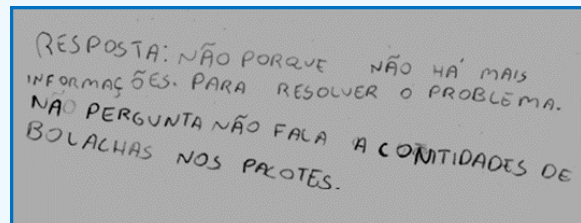 RESPOSTA: NÃO PORQUE NÃO HÁ MAIS
INFORMAÇÕES. PARA RESOLVER O PROBLEMA.
NÃO PERGUNTA NÃO FALA A CONTIDADES DE
BOLACHAS NOS PACOTES.